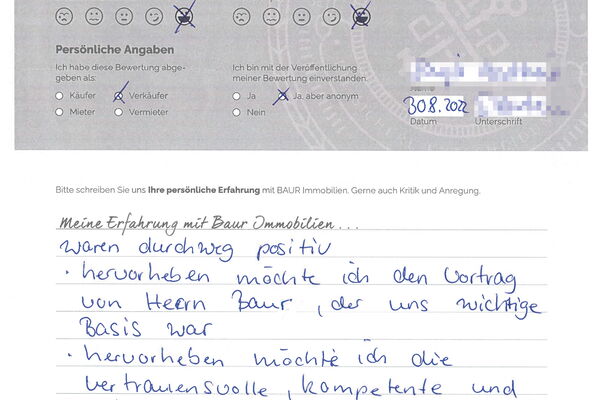 Persönliche Angaben
Ich habe diese Bewertung abge-
geben als:
Käufer
Verkäufer
Mieter
Vermieter
Ich bin mit der Veröffentlichung
meiner Bewertung einverstanden.
Ja
Ja, aber anonym
Nein
30.8.2022
Datum
Unterschrift
Bitte schreiben Sie uns Ihre persönliche Erfahrung mit BAUR Immobilien. Gerne auch Kritik und Anregung.
Meine Erfahrung mit Baur Immobilien...
waren durchweg positiv
· hervorheben möchte ich den Vortrag
von Herrn Baur, der uns wichtige
Basis war
· hervorheben möchte ich die
vertrauensvolle, kompetente und